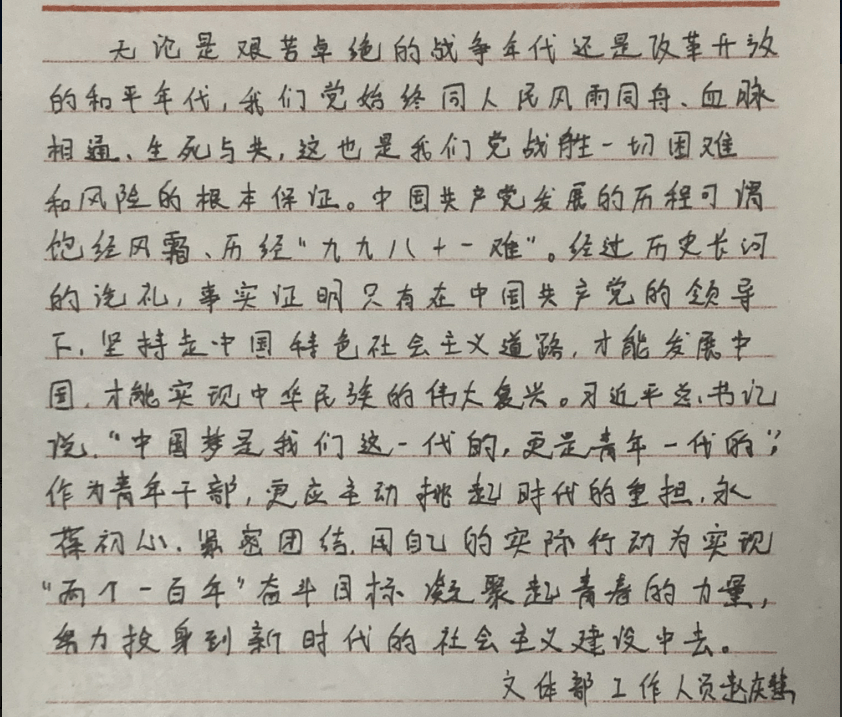 无论是艰苦卓绝的战争年代还是改革开放
的和平年代，我们党始终同人民风雨同舟、血脉
相通、生死与共，这也是我们党战胜一切困难
和风险的根本保证。中国共产党发展的历程可谓
饱经风霜、历经“九九八十一难”。经过历史长河
的洗礼，事实证明只有在中国共产党的领导
下，坚持走中国特色社会主义道路，才能发展中
国，才能实现中华民族的伟大复兴。习近平总书记
说，“中国梦是我们这一代的，更是青年一代的”，
作为青年干部，更应主动挑起时代的重担，永
葆初心、紧密团结，用自己的实际行动为实现
“两个一百年”奋斗目标凝聚起青春的力量，
努力投身到新时代的社会主义建设中去。
文体部工作人员赵庆